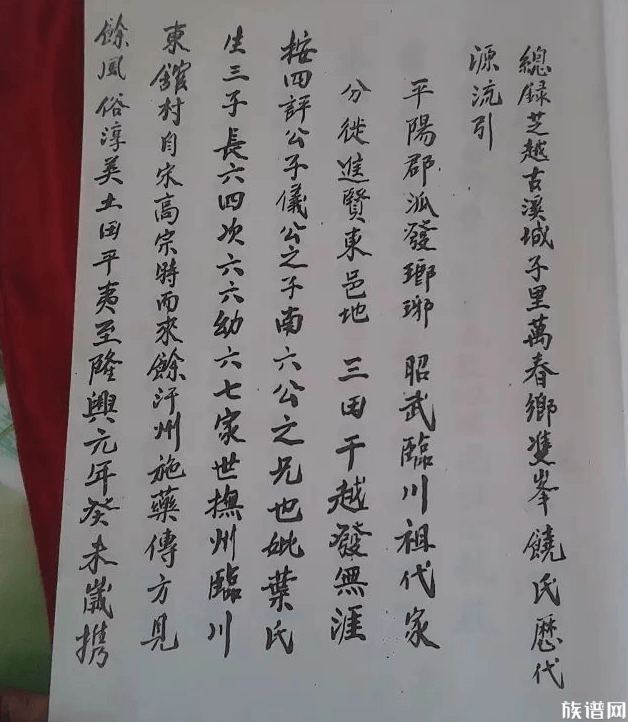 總録芝越古溪城子里萬春鄉鳳峯饒氏歷代
源流引
平陽郡派發瑯琊 昭武臨川祖代家
分徙進賢東邑地 三田干越發無涯
按四評公子儀公之子南六公之兄也妣葉氏
生三子長六四次六六幼六七家世撫州臨川
東舘村自宋高宗時而來餘汗州施藥傳方見
餘風俗淳美土田平夷至隆興元年癸未歲携
族谱网